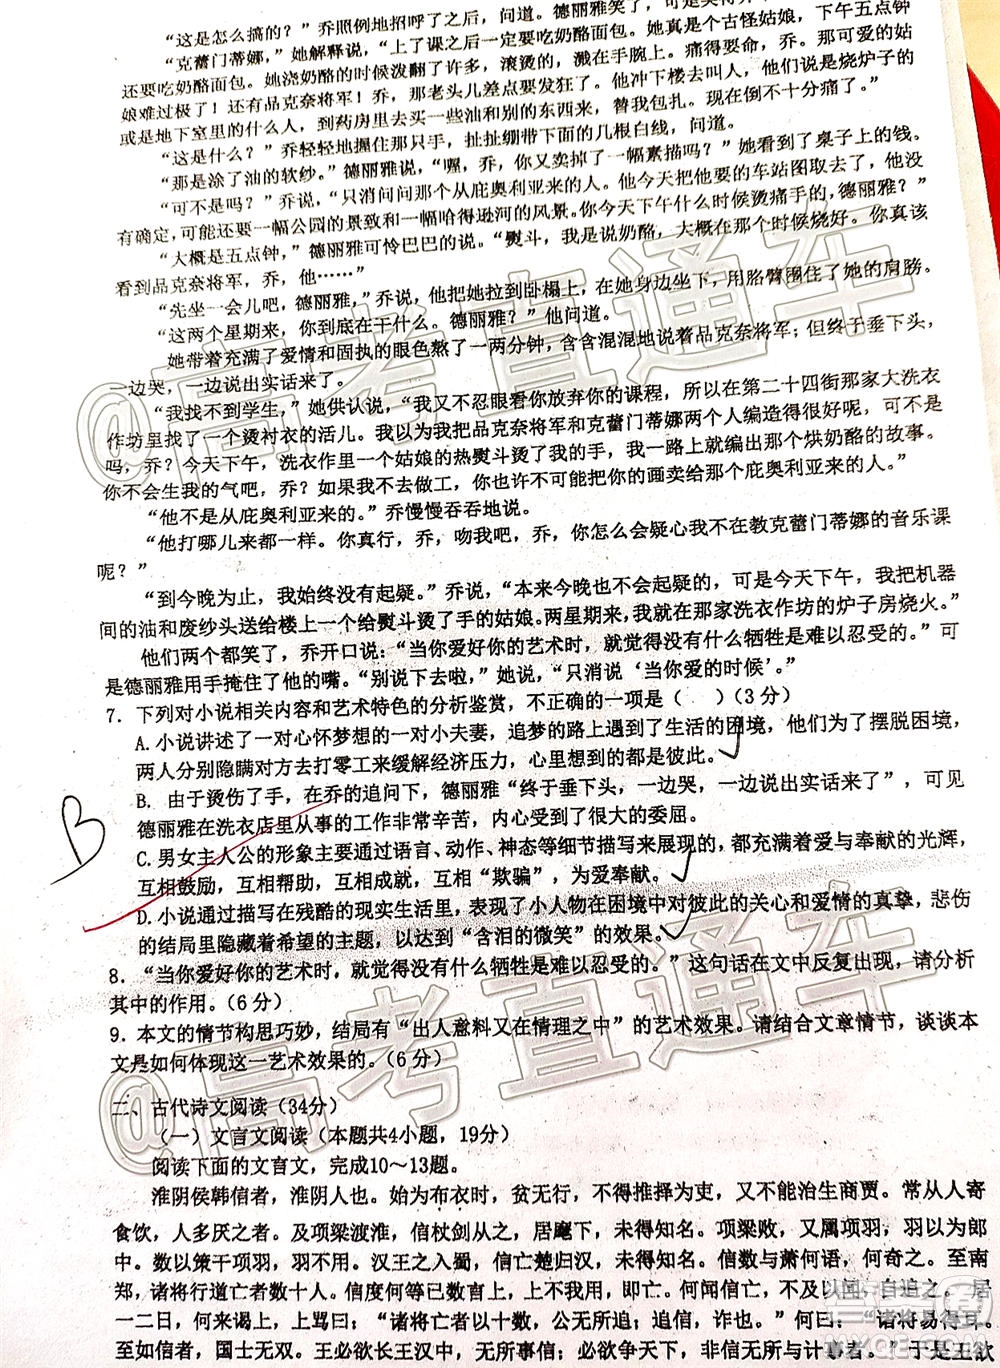 “这是怎么搞的？”乔照例地招呼了之后，问道。德丽雅笑了，可
“克蕾门蒂娜，”她解释说，“上了课之后一定要吃奶酪面包。她真是个古怪姑娘，下午五点钟
还要吃奶酪面包。她浇奶酪的时候泼翻了许多，滚烫的，溅在手腕上。痛得要命，乔。那可爱的姑
娘难过极了！还有品克奈将军！乔，那老头儿差点要发狂了。他冲下楼去叫人——他们说是烧炉子的
或是地下室里的什么人，到药房里去买一些油和别的东西来，替我包扎。现在倒不十分痛了。”
“这是什么？”乔轻轻地握住那只手，扯扯绷带下面的几根白线，问道。
“那是涂了油的软纱。”德丽雅说，“喔，乔，你又卖掉了一幅素描吗？”她看到了桌子上的钱。
“可不是吗？”乔说，“只消问问那个从庇奥利亚来的人。他今天把他要的车站图取去了，他没
有确定，可能还要一幅公园的景致和一幅哈得逊河的风景。你今天下午什么时候烫痛手的，德丽雅？”
“大概是五点钟，”德丽雅可怜巴巴的说。“熨斗，我是说奶酪，大概在那个时候烧好。你真该
看到品克奈将军，乔，他……”
“先坐一会儿吧，德丽雅，”乔说，他把她拉到卧榻上，在她身边坐下，用胳臂围住了她的肩膀。
“这两个星期来，你到底在干什么。德丽雅？”他问道。
她带着充满了爱情和固执的眼色熬了一两分钟，含含混混地说着品克奈将军；但终于垂下头，
一边哭，一边说出实话来了。
“我找不到学生，”她供认说，“我又不忍眼看你放弃你的课程，所以在第二十四街那家大洗衣
作坊里找了一个烫衬衣的活儿。我以为我把品克奈将军和克蕾门蒂娜两个人编造得很好呢，可不是
吗，乔？今天下午，洗衣作里一个姑娘的热熨斗烫了我的手，我一路上就编出那个烘奶酪的故事。
你不会生我的气吧，乔？如果我不去做工，你也许不可能把你的画卖给那个庇奥利亚来的人。”
“他不是从庇奥利亚来的。”乔慢慢吞吞地说。
“他打哪儿来都一样。你真行，乔，吻我吧，你怎么会疑心我不在教克蕾门蒂娜的音乐课
呢？”
“到今晚为止，我始终没有起疑。”乔说，“本来今晚也不会起疑的，可是今天下午，我把机器
间的油和废纱头送给楼上一个给熨斗烫了手的姑娘。两星期来，我就在那家洗衣作坊的炉子房烧火。”
他们两个都笑了，乔开口说：“当你爱好你的艺术时，就觉得没有什么牺牲是难以忍受的。”可
是德丽雅用手掩住了他的嘴。“别说下去啦，”她说，“只消说‘当你爱的时候’。”
7．下列对小说相关内容和艺术特色的分析鉴赏，不正确的一项是（ ）（3分）
A.小说讲述了一对心怀梦想的一对小夫妻，追梦的路上遇到了生活的困境，他们为了摆脱困境，
两人分别隐瞒对方去打零工来缓解经济压力，心里想到的都是彼此。
B
B．由于烫伤了手，在乔的追问下，德丽雅“终于垂下头，一边哭，一边说出实话来了”，可见
德丽雅在洗衣店里从事的工作非常辛苦，内心受到了很大的委屈。
C.男女主人公的形象主要通过语言、动作、神态等细节描写来展现的，都充满着爱与奉献的光辉，
互相鼓励，互相帮助，互相成就，互相“欺骗”，为爱奉献。
D.小说通过描写在残酷的现实生活里，表现了小人物在困境中对彼此的关心和爱情的真挚，悲伤
的结局里隐藏着希望的主题，以达到“含泪的微笑”的效果。
8．“当你爱好你的艺术时，就觉得没有什么牺牲是难以忍受的。”这句话在文中反复出现，请分析
其中的作用。（6分）
9．本文的情节构思巧妙，结局有“出人意料又在情理之中”的艺术效果。请结合文章情节，谈谈本
文是如何体现这一艺术效果的。（6分）
二、古代诗文阅读（34分）
（一）文言文阅读（本题共4小题，19分）
阅读下面的文言文，完成10～13题。
淮阴侯韩信者，淮阴人也。始为布衣时，贫无行，不得推择为吏，又不能治生商贾。常从人寄
食饮，人多厌之者。及项梁渡淮，信杖剑从之，居麾下，未得知名。项梁败，又属项羽，羽以为郎
中。数以策干项羽，羽不用。汉王之入蜀，信亡楚归汉，未得知名。信数与萧何语，何奇之。至南
郑，诸将行道亡者数十人，信度何等已数言上，上不我用，即亡。何闻信亡，不及以闻，自追之。居
一二日，何来谒上，上骂曰：“诸将亡者以十数，公无所追；追信，诈也。”何曰：“诸将易得耳。
至如信者，国士无双。王必欲长王汉中，无所事信；必欲争天下，非信无所与计事者。”于是王欲
@高考直通车
@高考直通车